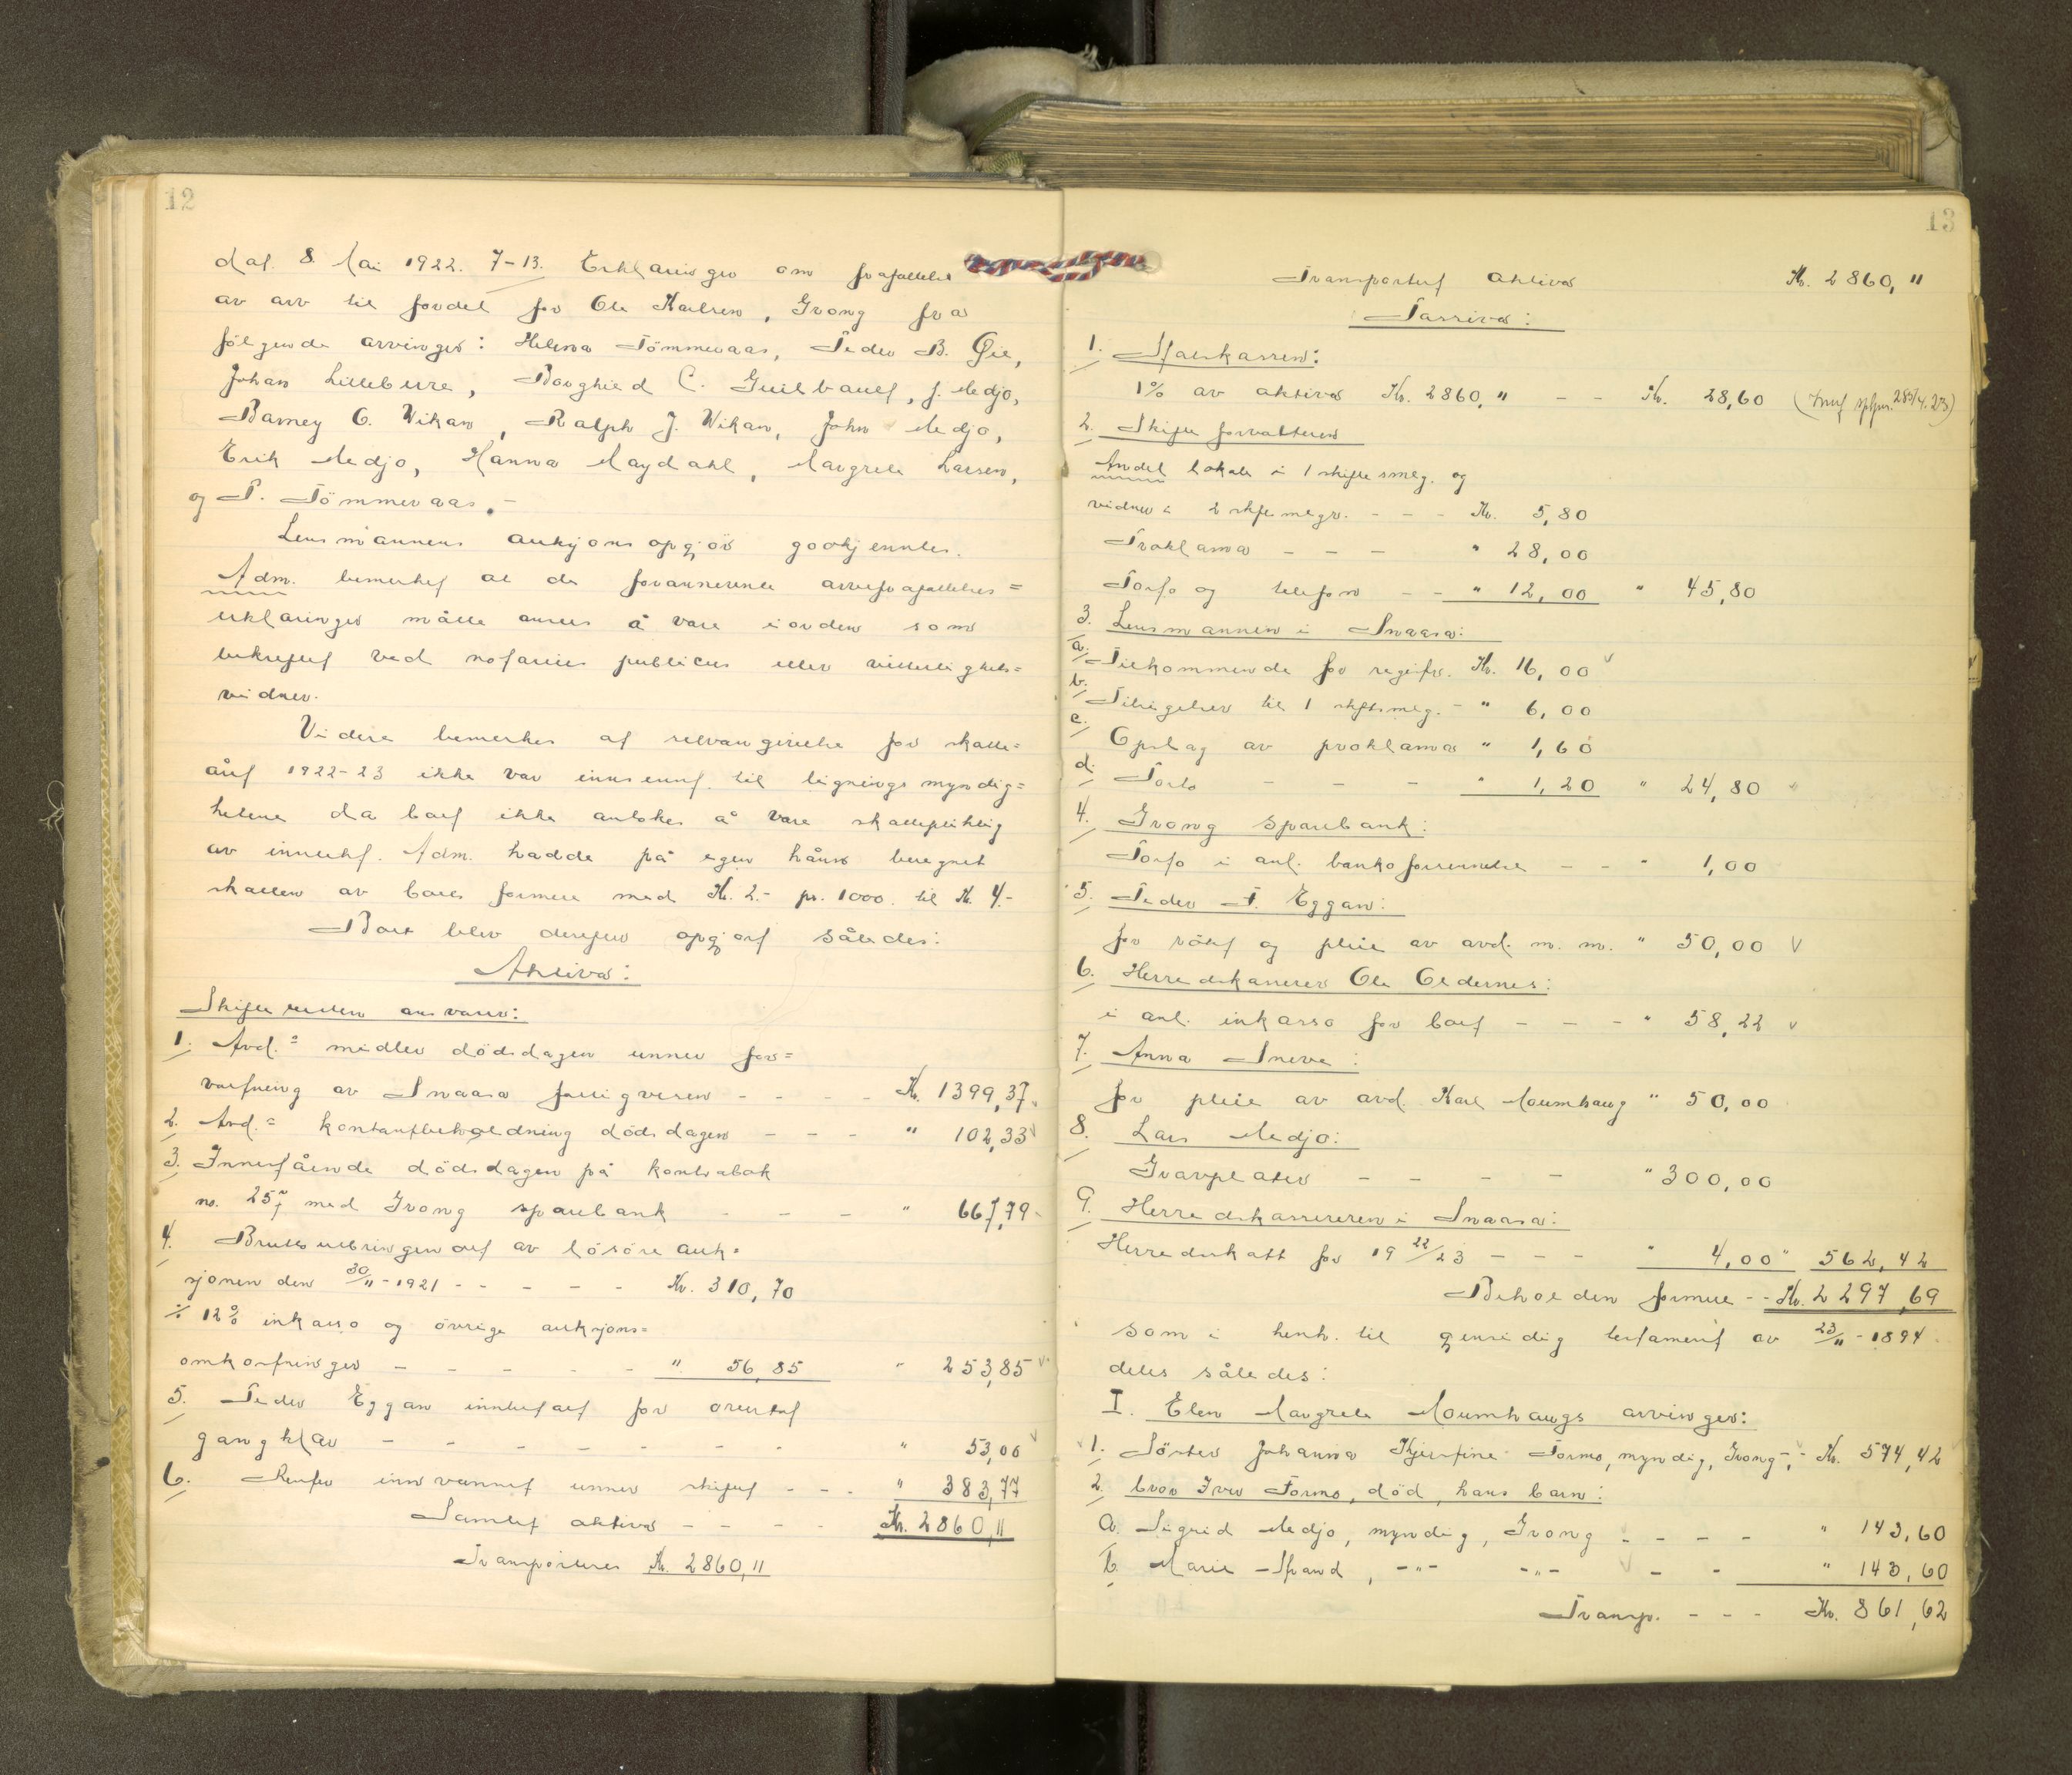 12
dat. 8 Mai 1922. 7-13. Erklæringer om frafallelse
av arv til fordel for Ole Karlsen, Grong fra
følgende arvinger: Helena Tömmeraas, Peder B. Øie,
Johan Lilleberre, Borghild C. Guilbault, J. Medjo,
Barney O. Vikan, Ralph J. Vikan, John Medjo,
Erik Medjo, Hanna Maydahl, Margrete Larsen,
og P. Tömmeraas. -
Lensmannens auksjonsopgjör godkjentes.
Adm. bemerket at de forannevnte arvefrafallelses=
erklæringer måtte ansees å være i orden som
bekreftet ved notarius publicus eller vitterlighets=
vidner.
Videre bemerkes at selvangivelse for skatte=
året 1922-23 ikke var innsennt til lignings myndig=
hetene da boet ikke antokes å være skattepliktig
av inntekt. Adm. hadde på egen hånd beregnet
skatten av boets formue med Kr. 2.- pr. 1000. til Kr. 4.-
Boet blev derefter opgjort således:
Aktiva:
Skifteretten ansvarer:
1. Avd.s midler dödsdagen unner for=
valtning av Snaasa fattigvesen - - - - Kr. 1399,37
2. Avd.s kontantbeholdning dödsdagen - - - " 102,33
3. Innestående dödsdagen på kontrabok
no. 257 med Grong sparebank - - - " 667,79
4. Brutto utbringendet av lösöre auk=
sjonen den 30/11-1921 - - - - - Kr. 310,70
÷ 12% inkasso og övrige auksjons=
omkostninger - - - - - " 56,85 " 253,85
5. Peder Eggan innbetalt for overtat
gangklær - - - - - - - " 53,00
6. Renter innvunnet unner skiftet - - - " 383,77
Samlet aktiva - - - - Kr. 2860,11
Transporteres Kr. 2860,11
13
Transportert aktiva Kr. 2860,11
Passiva:
1. Statskassen:
1% av aktiva Kr. 2860,11 - - Kr. 28,60
2. Skifteforvalteren
Andel lokale i 1 skiftesmlg. og
vidner i 2 skftsmlgr. - - - Kr. 5,80
Proklama - - - " 28,00
Porto og telefon - - " 12,00 " 45,80
3. Lensmannen i Snaasa:
a. Tilkommende for registr. Kr. 16,00
b. Tilsigelser til 1 skftsmlg. - " 6,00
c. Opslag av proklama " 1,60
d. Porto - - - " 1,20 " 24,80
4. Grong sparebank:
Porto i anl. bankoforsendelse - - " 1,00
5. Peder P. Eggan:
for rökt og pleie av avd. m. m. " 50,00
6. Herredskasserer Ole Oldernes:
i anl. inkasso for boet - - - " 58,22
7. Anna Sneve:
for pleie av avd. Karl Moumhaug " 50,00
8. Lars Medjo:
Gravplater - - - - " 300,00
9. Herredskassereren i Snaasa:
Herredsskatt for 19 22/23 - - - " 4,00 " 562,42
Beholden formue - - Kr. 2297,69
som i henh. til gjensidig testament av 23/11-1894
deles således:
I. Elen Margrete Moumhaugs arvinger:
1. Söster Johanna Kjerstine Formo, myndig, Grong - - Kr. 574,42
2. bror Iver Formo, död, hans barn:
a. Sigrid Medjo, myndig, Grong - - - - " 143,60
b. Marie Strand, -"- -"- - - " 143,60
Transp. - - - Kr. 861,62